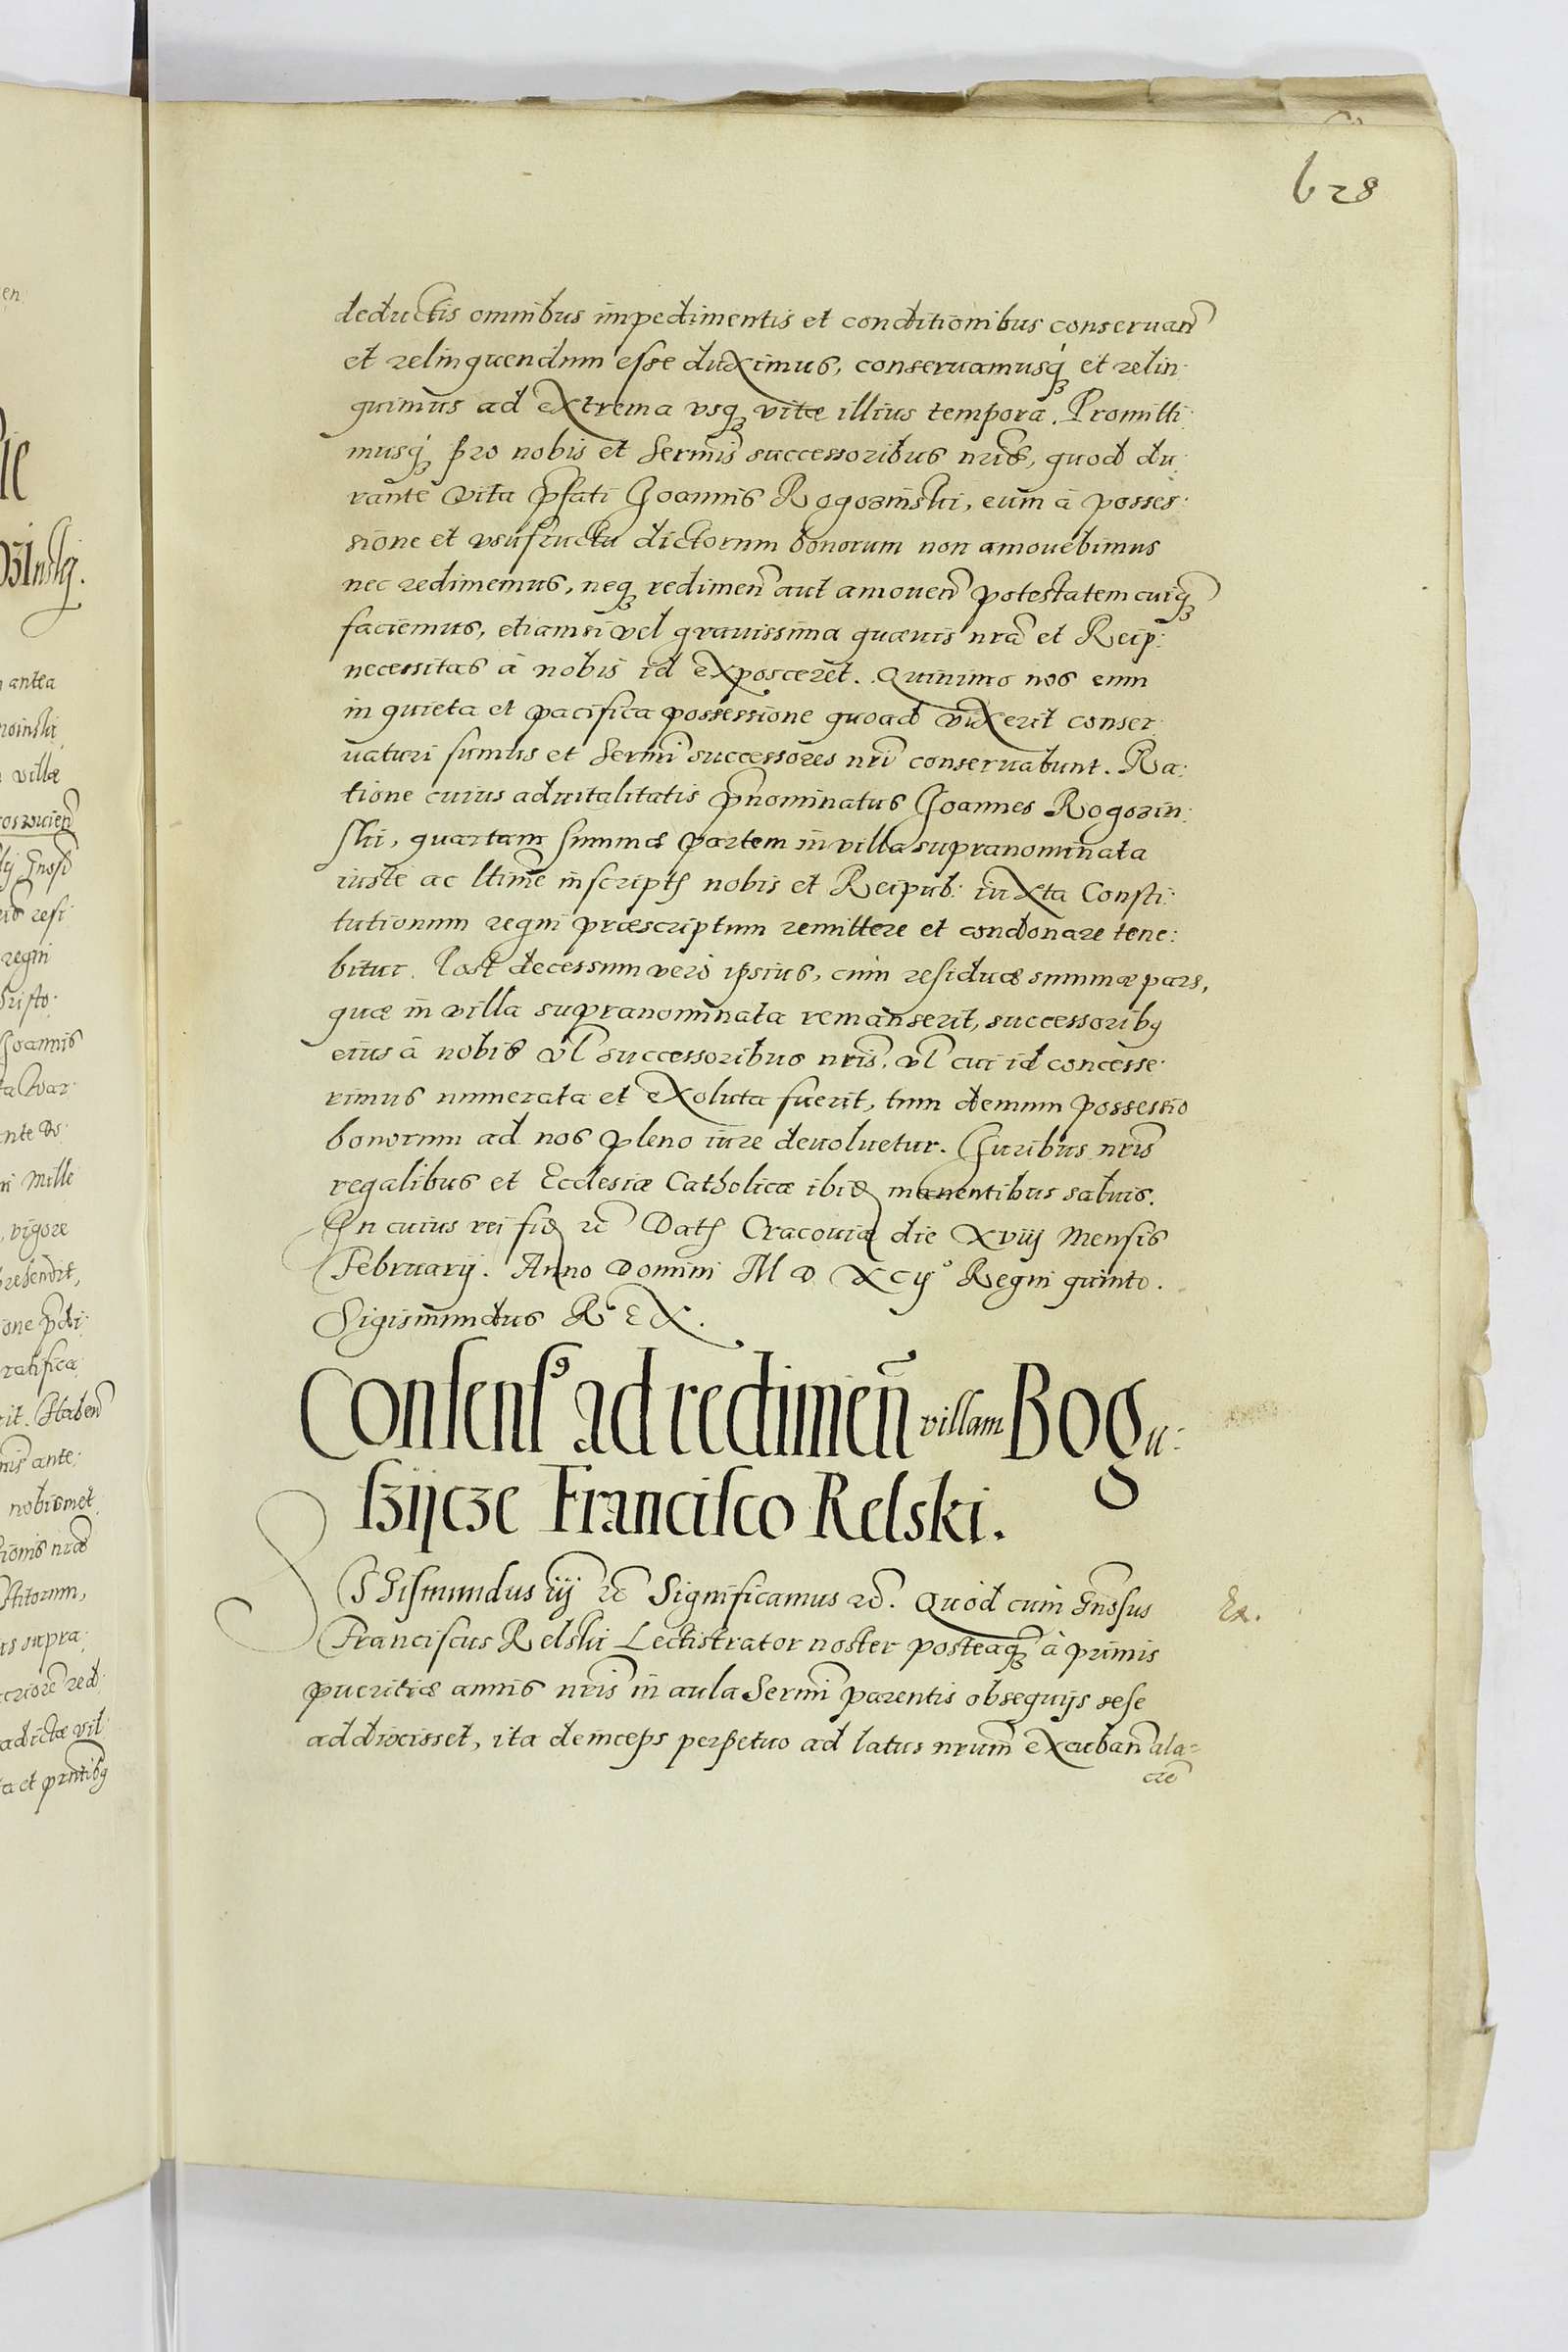 628
deductis omnibus impedimentis et conditionibus conseruan̄
et relinquendum esse duximus, conseruamusq́ꝫ et relin:
quimus ad extrema vsqꝫ vitæ illius tempora. Promitti:
musq́ꝫ pro nobis et Serm̄is successoribus nr̄is, quod du:
rante vita p̄fati Joannis Rogoziński, eum à posses:
sione et vsufructu dictorum bonorum non amouebimus
nec redimemus, neqꝫ redimen̄ aut amouen̄ potestatem cuiqꝫ
faciemus, etiamsi vel grauissima quæuis nr̄a et Reip:
necessitas à nobis id exposceret. Quinimo nos eum
in quieta et pacifica possessione quoad vixerit conser:
uaturi sumus et Serm̄i successores nr̄i conseruabunt. Ra:
tione cuius aduitalitatis p̄nominatus Joannes Rogozin:
ski, quartam summæ partem in villa supranominata
iuste ac ltime inscriptꝭ nobis et Reipub: iuxta Consti:
tutionum regni præscriptum remittere et condonare tene:
bitur. Post decessum vero ipsius, cum residuæ summæ pars,
quæ in villa supranominata remanserit, successoribꝫ
eius à nobis vl̄ successoribus nr̄is, vl̄ cui id concesse:
rimus numerata et exoluta fuerit, tum demum possessio
bonorum ad nos pleno iure deuoluetur. Juribus nr̄is
regalibus et Ecclesiæ Catholicæ ibiꝺ manentibus saluis.
In cuius rei fiꝺ ꝛc̄ Datꝭ Cracouiæ die xviij Mensis
Februarij. Anno Domini M D XCijº Regni quinto.
Sigismundus REX.
Consensꝰ ad redimen̄ villam Bogu:
szijcze Francisco Relski.
SIgismundus iij ꝛc̄ Significamus ꝛc̄. Quod cum Gn̄osus
Ex.
Franciscus Relski Lectistrator noster posteaqꝫ à primis
pueritiæ annis nr̄is in aula Serm̄i parentis obsequijs sese
addixisset, ita deinceps perpetuo ad latus nrum̄ excuban̄ ala=
cre